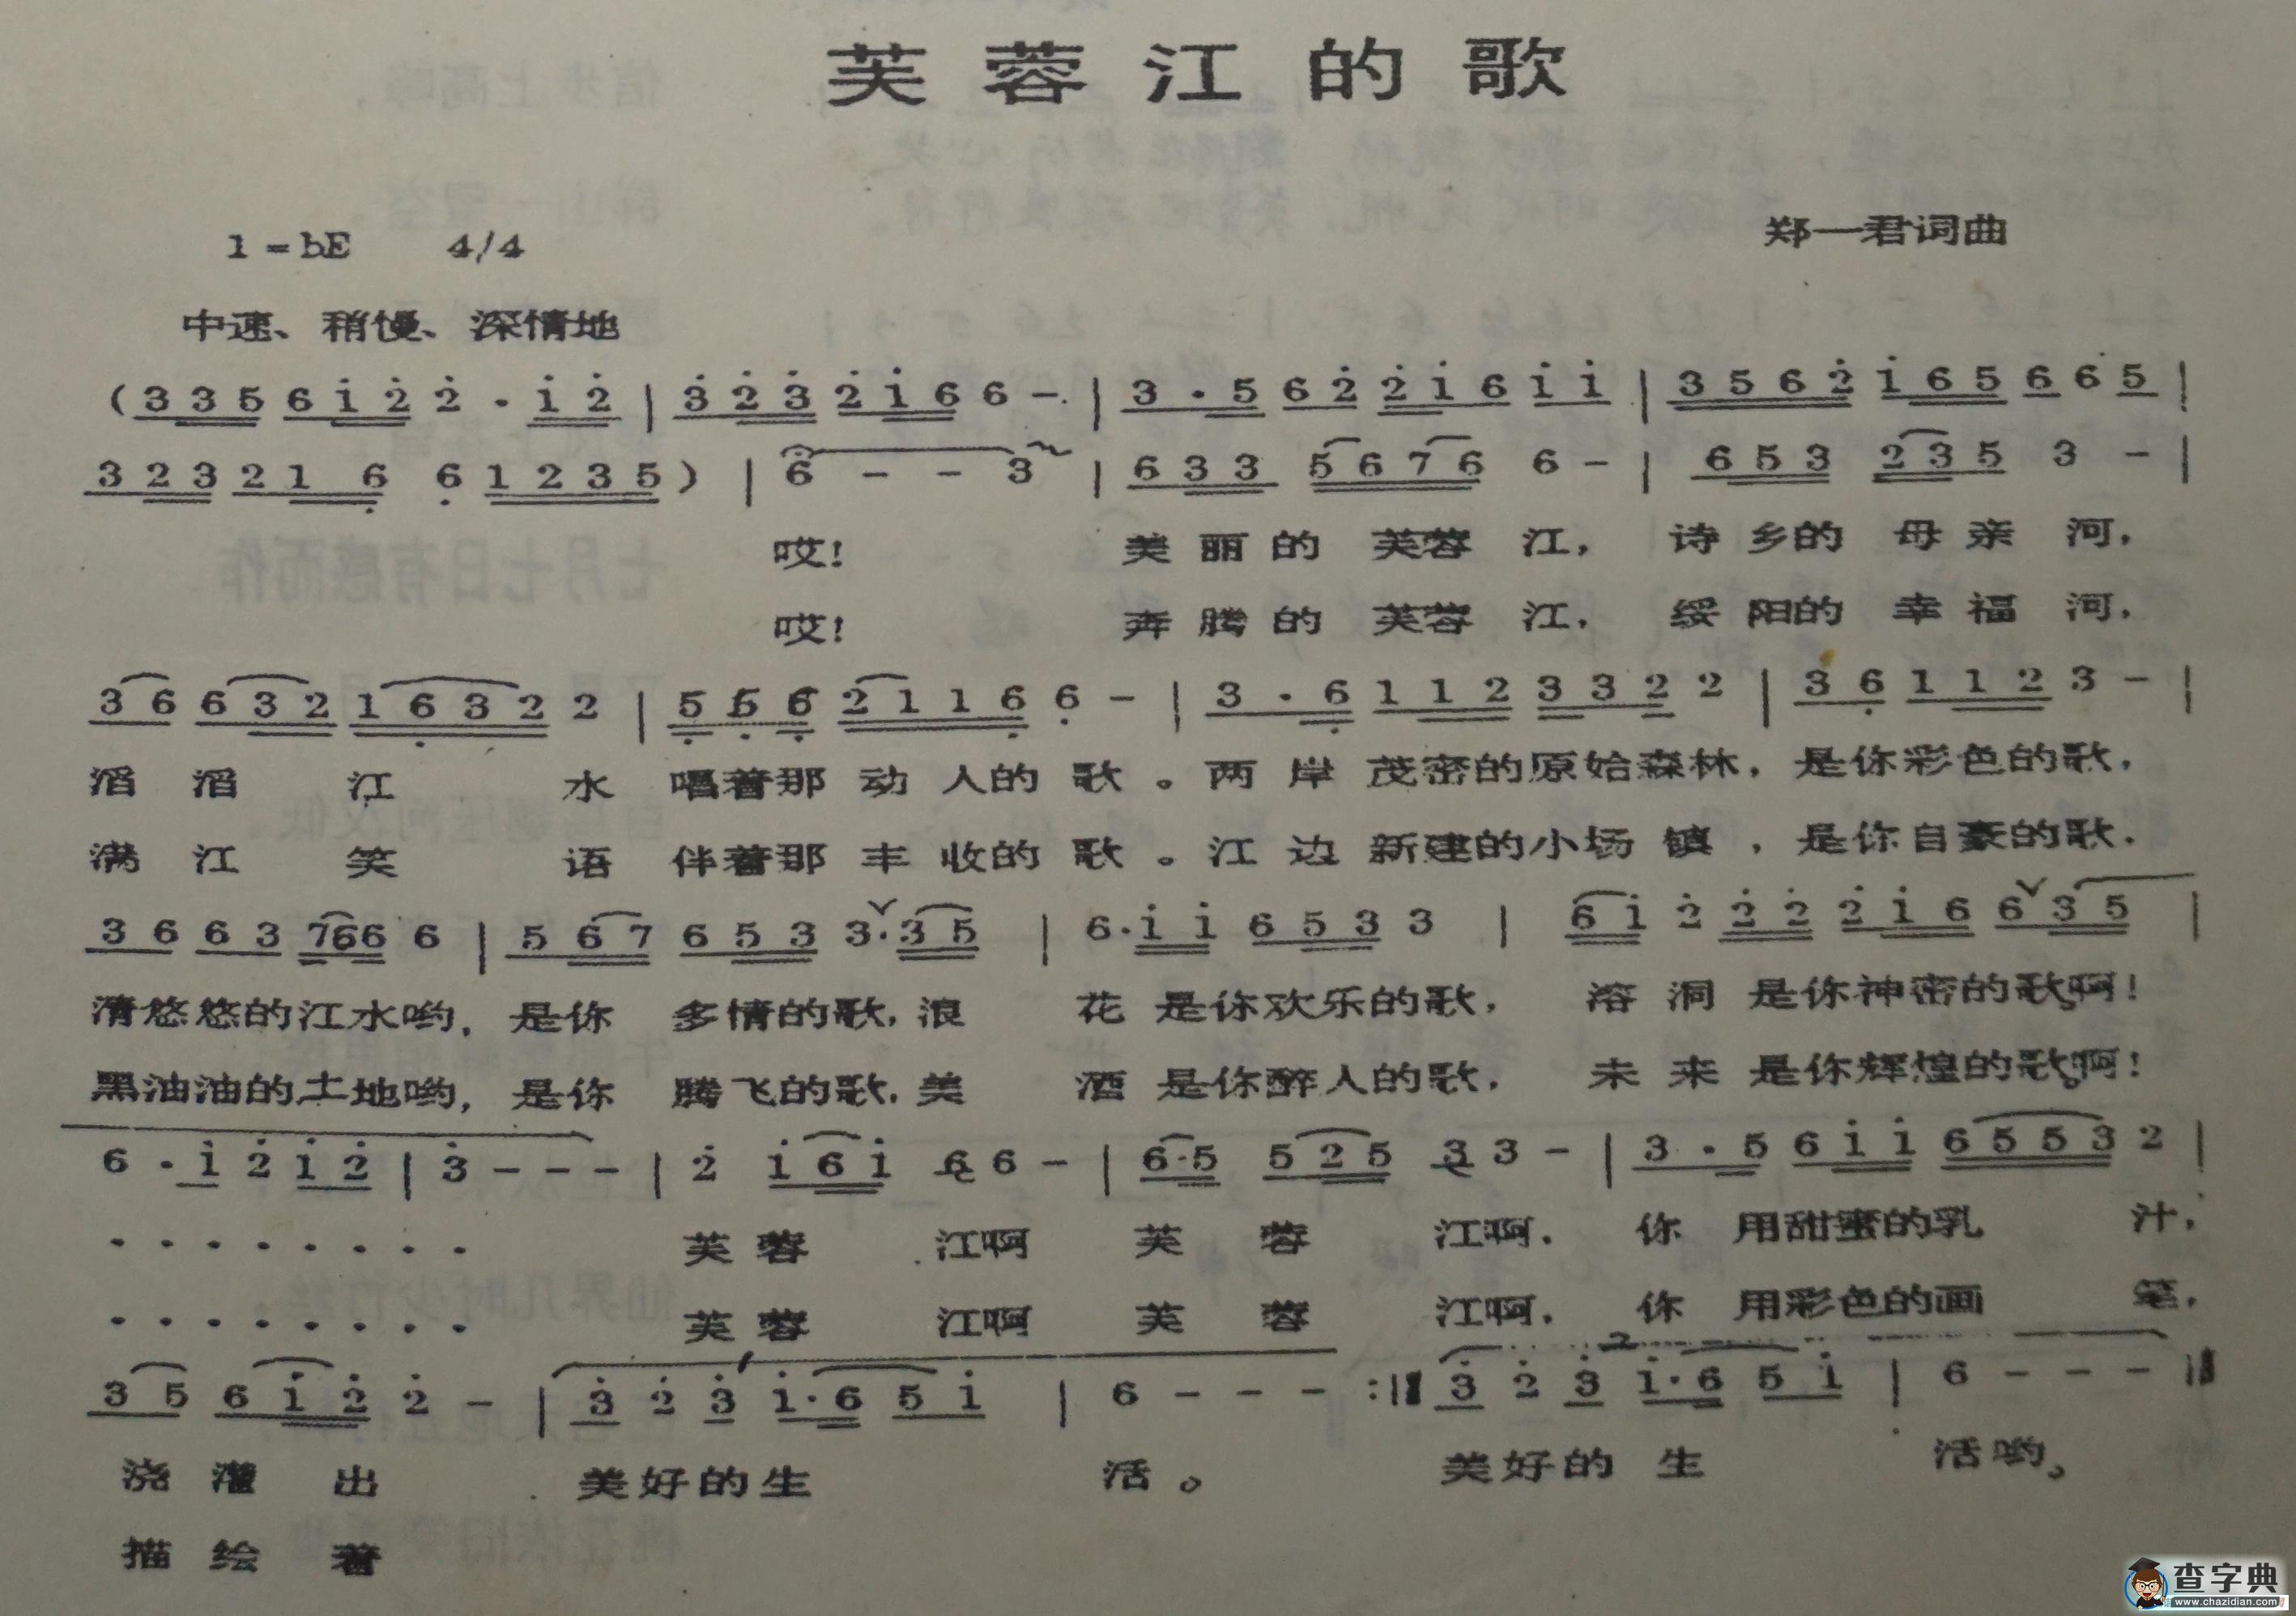 芙蓉江的歌
1=bE 4/4
郑一君词曲
中速、稍慢、深情地
(3 3 5 6 i 2 2 · i 2 | 3 2 3 2 i 6 6 - | 3 · 5 6 2 2 i 6 i i | 3 5 6 2 i 6 5 6 6 5 |
3 2 3 2 1 6 6 1 2 3 5 ) | 6 - - 3 | 6 3 3 5 6 7 6 6 - | 6 5 3 2 3 5 3 - |
哎! 美丽的芙蓉江, 诗乡的母亲河,
哎! 奔腾的芙蓉江, 绥阳的幸福河,
3 6 6 3 2 1 6 3 2 2 | 5 5 6 2 1 1 6 6 - | 3 · 6 1 1 2 3 3 2 2 | 3 6 1 1 2 3 - |
滔滔江水唱着那动人的歌。两岸茂密的原始森林,是你彩色的歌,
满江笑语伴着那丰收的歌。江边新建的小场镇,是你自豪的歌.
3 6 6 3 7 6 6 6 | 5 6 7 6 5 3 3 · 3 5 | 6 · i i 6 5 3 3 | 6 i 2 2 2 2 i 6 6 3 5 |
清悠悠的江水哟,是你多情的歌,浪花是你欢乐的歌, 溶洞是你神密的歌,啊!
黑油油的土地哟,是你腾飞的歌,美酒是你醉人的歌, 未来是你辉煌的歌,啊!
6 · i 2 i 2 | 3 - - - | 2 i 6 i 6 6 - | 6 · 5 5 2 5 3 3 - | 3 · 5 6 i i 6 5 5 3 2 |
· · · · · · · · 芙蓉江啊芙蓉江啊.你用甜蜜的乳汁,
· · · · · · · · 芙蓉江啊芙蓉江啊.你用彩色的画笔,
3 5 6 i 2 2 - | 3 2 3 i · 6 5 i | 6 - - - :|| 3 2 3 i · 6 5 i | 6 - - - ||
浇灌出美好的生活。 美好的生活哟。
描绘着
查字典
www.chazidian.com